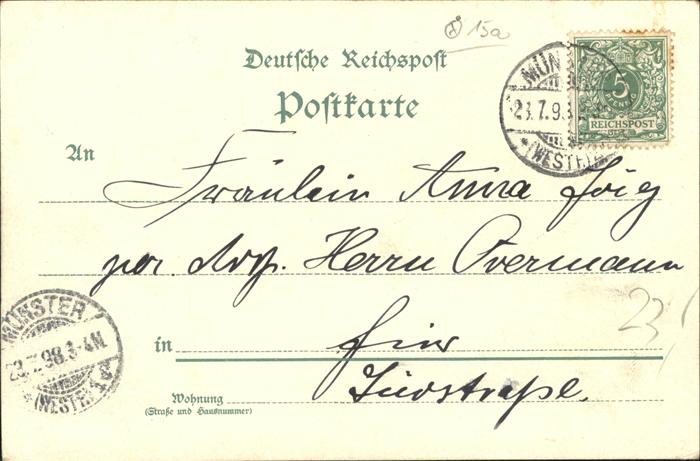 15a
Deutsche Reichspost
Postkarte
MÜN
23.7.9
(WESTF.)
5
PFENNIG
REICHSPOST
An
Fräulein Anna
per. Adr. Herrn Overmann
MÜNSTER
23.7.98.3-4N
(WESTF.)
23
in
hier
Wohnung
Südstraße.
(Straße und Hausnummer)